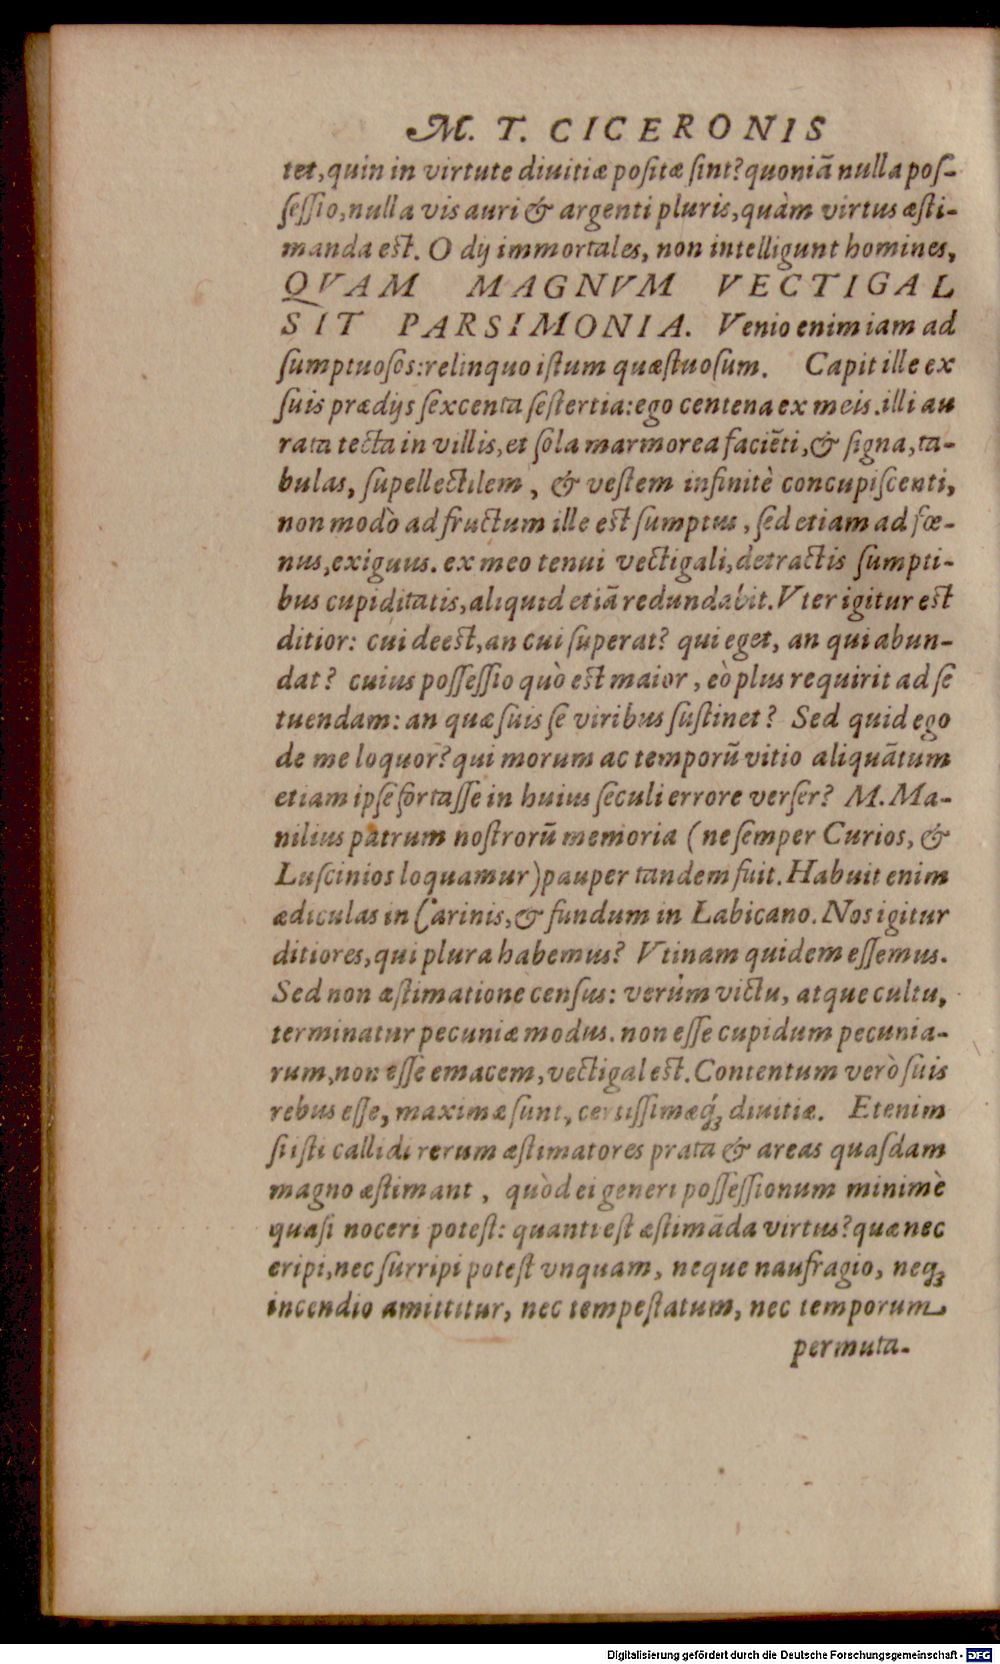 M. T. CICERONIS
tet, quin in virtute diuitiæ positæ sint? quoniã nulla pos-
sessio, nulla vis auri & argenti pluris, quàm virtus æsti-
manda est. O dij immortales, non intelligunt homines,
QVAM MAGNVM VECTIGAL
SIT PARSIMONIA. Venio enim iam ad
sumptuosos: relinquo istum quæstuosum. Capit ille ex
suis prædijs sexcenta sestertia: ego centena ex meis. illi au
rata tecta in villis, et sola marmorea faciẽti, & signa, ta-
bulas, supellectilem, & vestem infinitè concupiscenti,
non modò ad fructum ille est sumptus, sed etiam ad fœ-
nus, exiguus. ex meo tenui vectigali, detractis sumpti-
bus cupiditatis, aliquid etiã redundabit. Vter igitur est
ditior: cui deest, an cui superat? qui eget, an qui abun-
dat? cuius possessio quò est maior, eò plus requirit ad se
tuendam: an quæ suis se viribus sustinet? Sed quid ego
de me loquor? qui morum ac temporũ vitio aliquãtum
etiam ipse fortasse in huius seculi errore verser? M. Ma-
nilius patrum nostrorũ memoria (ne semper Curios, &
Luscinios loquamur) pauper tandem fuit. Habuit enim
ædiculas in Carinis, & fundum in Labicano. Nos igitur
ditiores, qui plura habemus? Vtinam quidem essemus.
Sed non æstimatione census: verùm victu, atque cultu,
terminatur pecuniæ modus. non esse cupidum pecunia-
rum, non esse emacem, vectigal est. Contentum verò suis
rebus esse, maximæ sunt, certissimæq́; diuitiæ. Etenim
si isti callidi rerum æstimatores prata & areas quasdam
magno æstimant, quòd ei generi possessionum minimè
quasi noceri potest: quanti est æstimãda virtus? quæ nec
eripi, nec surripi potest vnquam, neque naufragio, neq;
incendio amittitur, nec tempestatum, nec temporum
permuta-
Digitalisierung gefördert durch die Deutsche Forschungsgemeinschaft - DFG